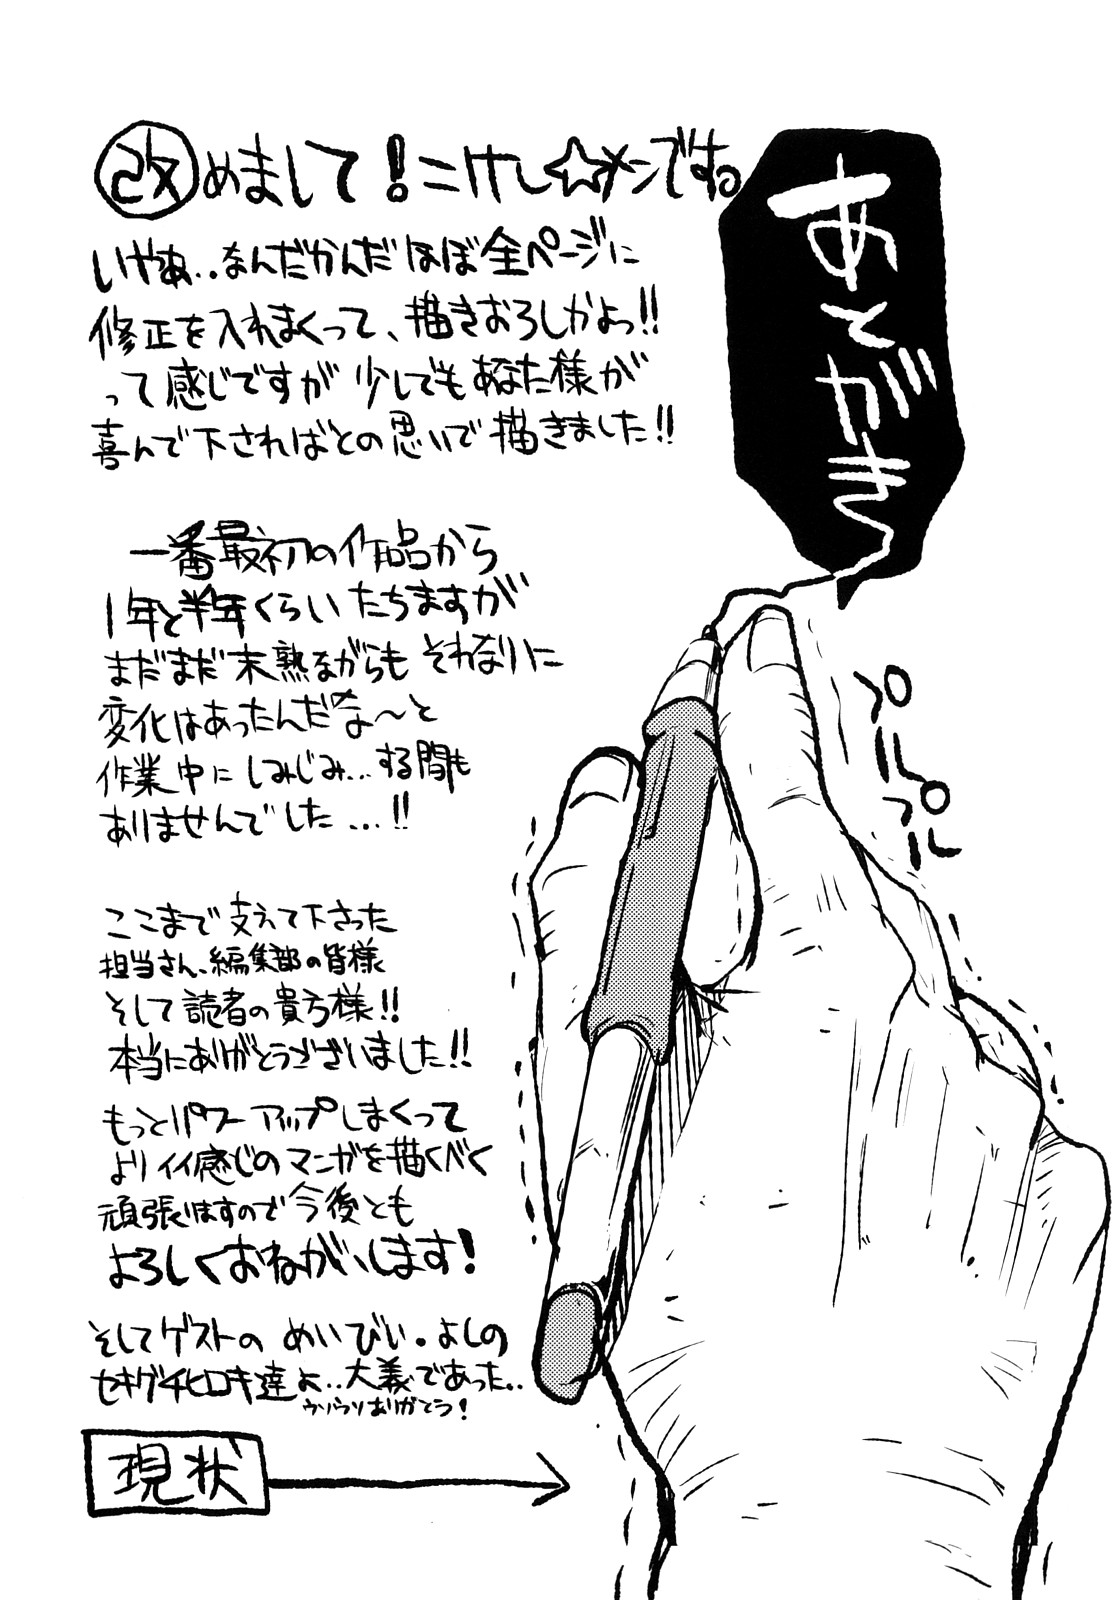 あとがき
改めまして!こけし☆メンです。
いやぁ‥なんだかんだほぼ全ページに
修正を入れまくって、描きおろしかよっ!!
って感じですが少しでもあなた様が
喜んで下さればとの思いで描きました!!
一番最初の作品から
1年と半年くらいたちますが
まだまだ未熟ながらもそれなりに
変化はあったんだな〜と
作業中にしみじみ…する間も
ありませんでした…!!
ここまで支えて下さった
担当さん、編集部の皆様
そして読者の貴方様!!
本当にありがとうございました!!
もっとパワーアップしまくって
よりイイ感じのマンガを描くべく
頑張りますので今後とも
よろしくおねがいします!
そしてゲストのめいびい・よしの
セキグチヒロキ達よ‥大義であった‥
ウソウソありがとう!
現状
プルプル